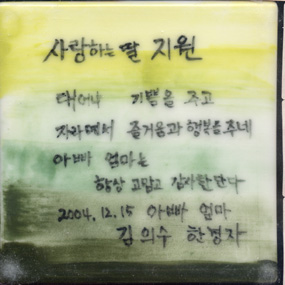 사랑하는 딸 지원
태어나 기쁨을 주고
자라면서 즐거움과 행복을 주네
아빠 엄마는
항상 고맙고 감사한단다
2004.12.15 아빠 엄마
김의수 한경자